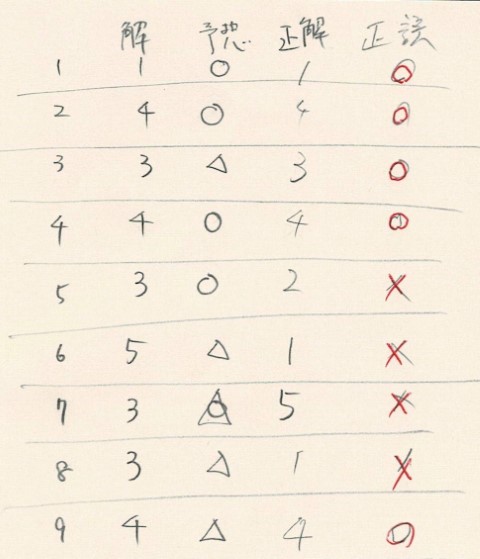 解 予想 正解 正誤
1 1 ○ 1 ○
2 4 ○ 4 ○
3 3 △ 3 ○
4 4 ○ 4 ○
5 3 ○ 2 ×
6 5 △ 1 ×
7 3 △ 5 ×
8 3 △ 1 ×
9 4 △ 4 ○